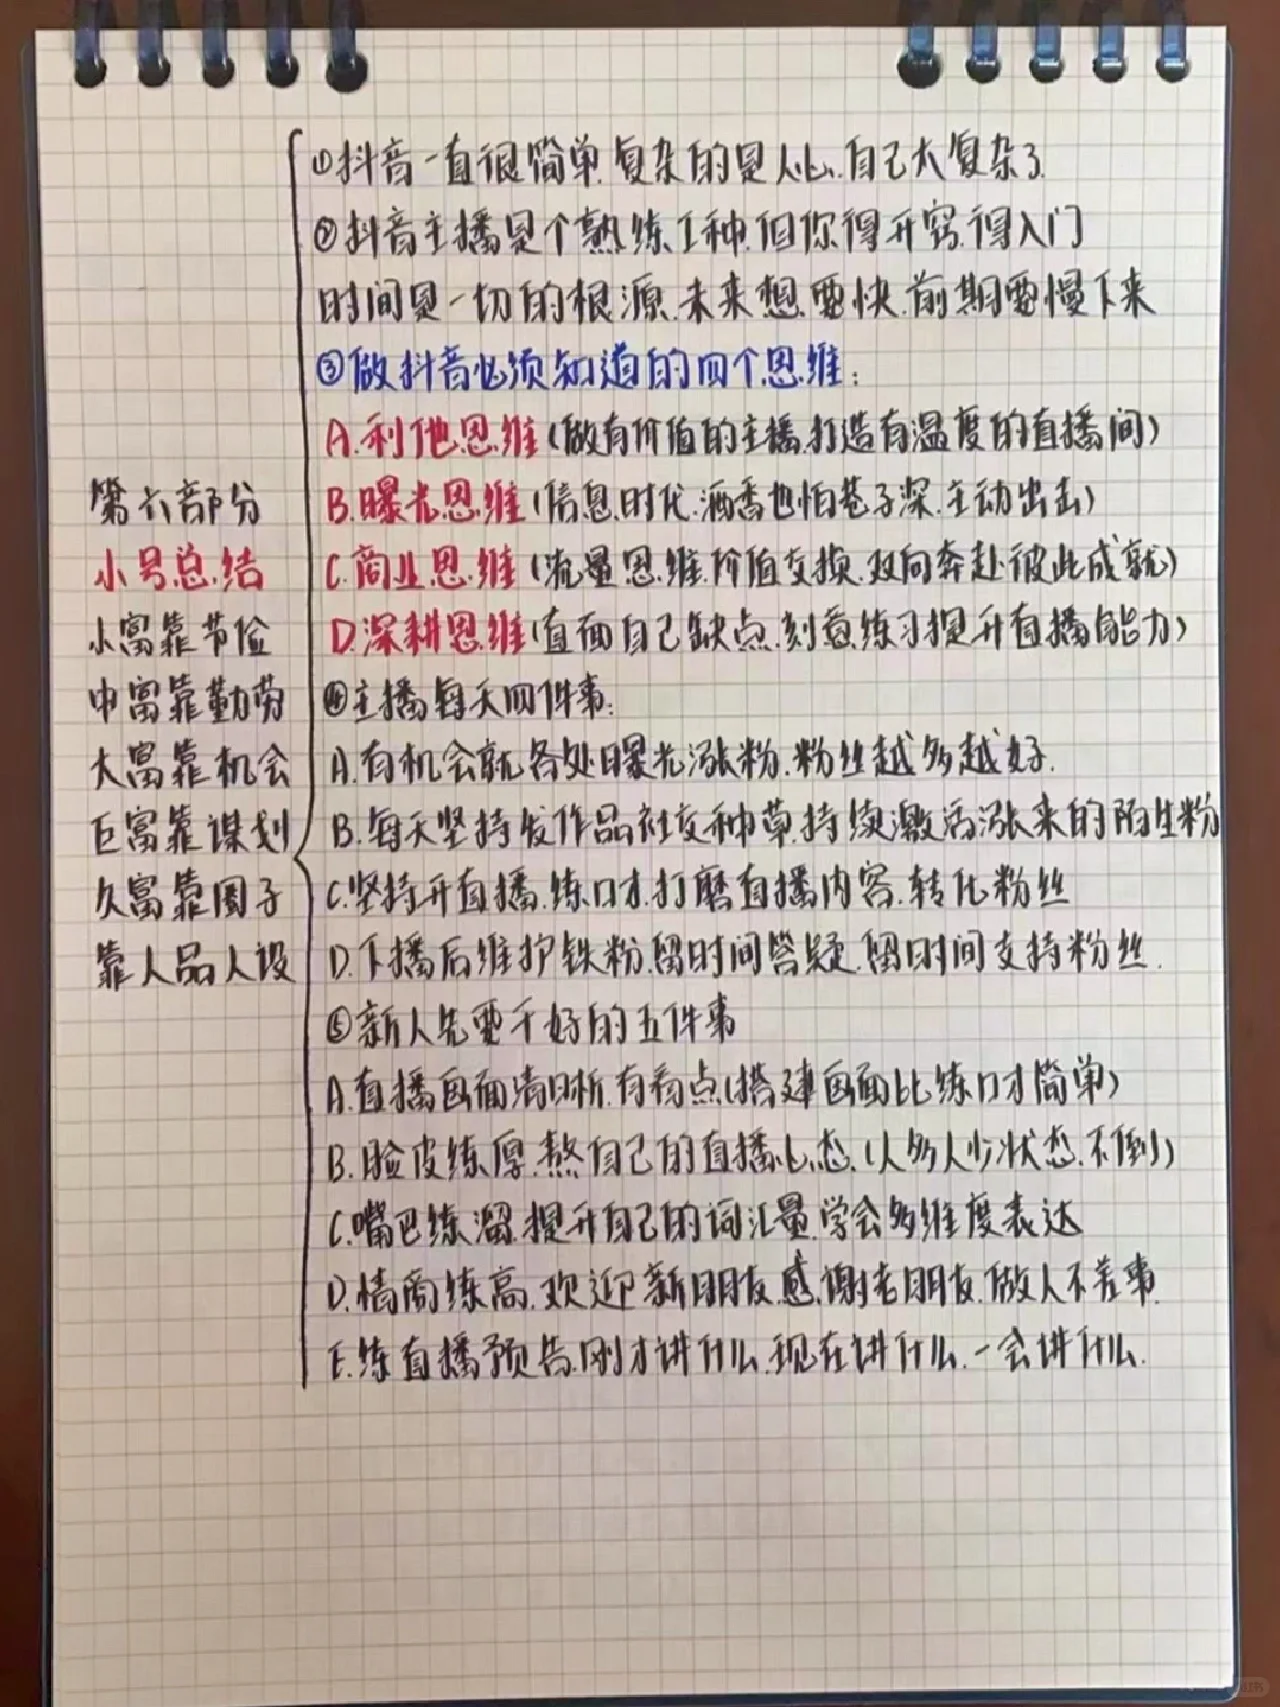 第六部分
小号总结
小富靠节俭
中富靠勤劳
大富靠机会
巨富靠谋划
久富靠圈子
靠人品人设
①抖音一直很简单.复杂的是人心.自己太复杂了.
②抖音主播是个熟练工种.但你得开窍.得入门
时间是一切的根源.未来想要快.前期要慢下来
③做抖音必须知道的四个思维:
A.利他思维(做有价值的主播.打造有温度的直播间)
B.曝光思维(信息时代.酒香也怕巷子深.主动出击)
C.商业思维(流量思维.价值交换.双向奔赴.彼此成就)
D.深耕思维(直面自己缺点.刻意练习提升直播能力)
④主播每天四件事:
A.有机会就各处曝光涨粉.粉丝越多越好.
B.每天坚持发作品社交种草.持续激活涨来的陌生粉
C.坚持开直播.练口才.打磨直播内容.转化粉丝
D.下播后维护铁粉.留时间答疑.留时间支持粉丝.
⑤新人先要干好的五件事
A.直播画面清晰.有看点(搭建画面比练口才简单)
B.脸皮练厚.熬自己的直播心态.(人多人少状态.不倒)
C.嘴巴练溜.提升自己的词汇量.学会多维度表达
D.情商练高.欢迎新朋友.感谢老朋友.做人不差事.
E.练直播预告.刚才讲什么.现在讲什么.一会讲什么.